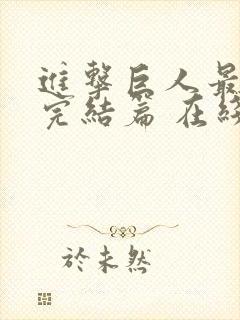 進擊巨人最
完結篇 在線
於未然